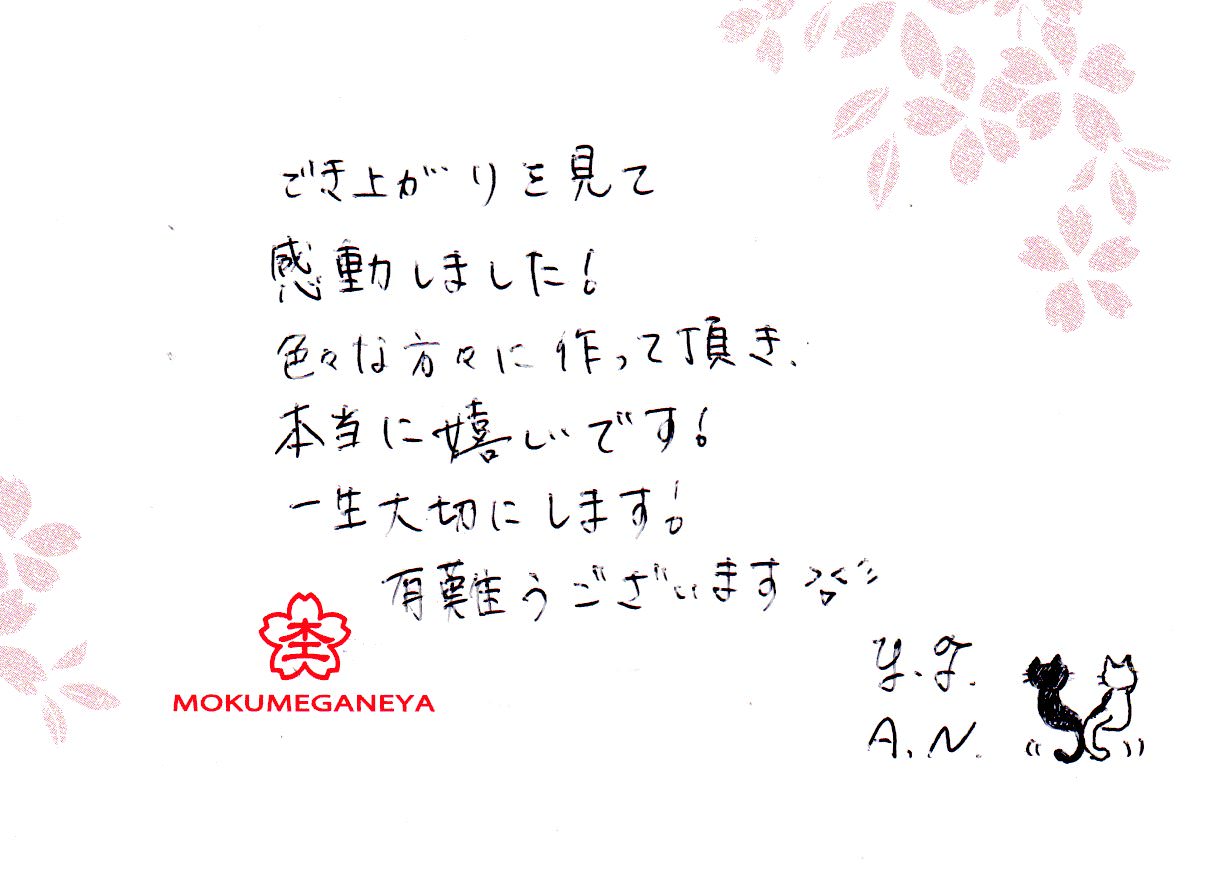 でき上がりを見て
感動しました!
色々な方々に作って頂き、
本当に嬉しいです!
一生大切にします!
有難うございます
MOKUMEGANEYA
A.N.